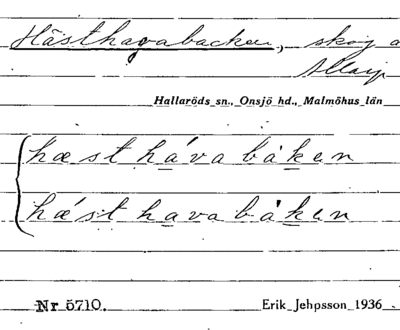 Hästhagabacken, skog a
Allarp
Hallaröds sn., Onsjö hd., Malmöhus län
hæst háva bàken
hǽst hava bȧ̀ken
Nr 5710. Erik Jehpsson 1936